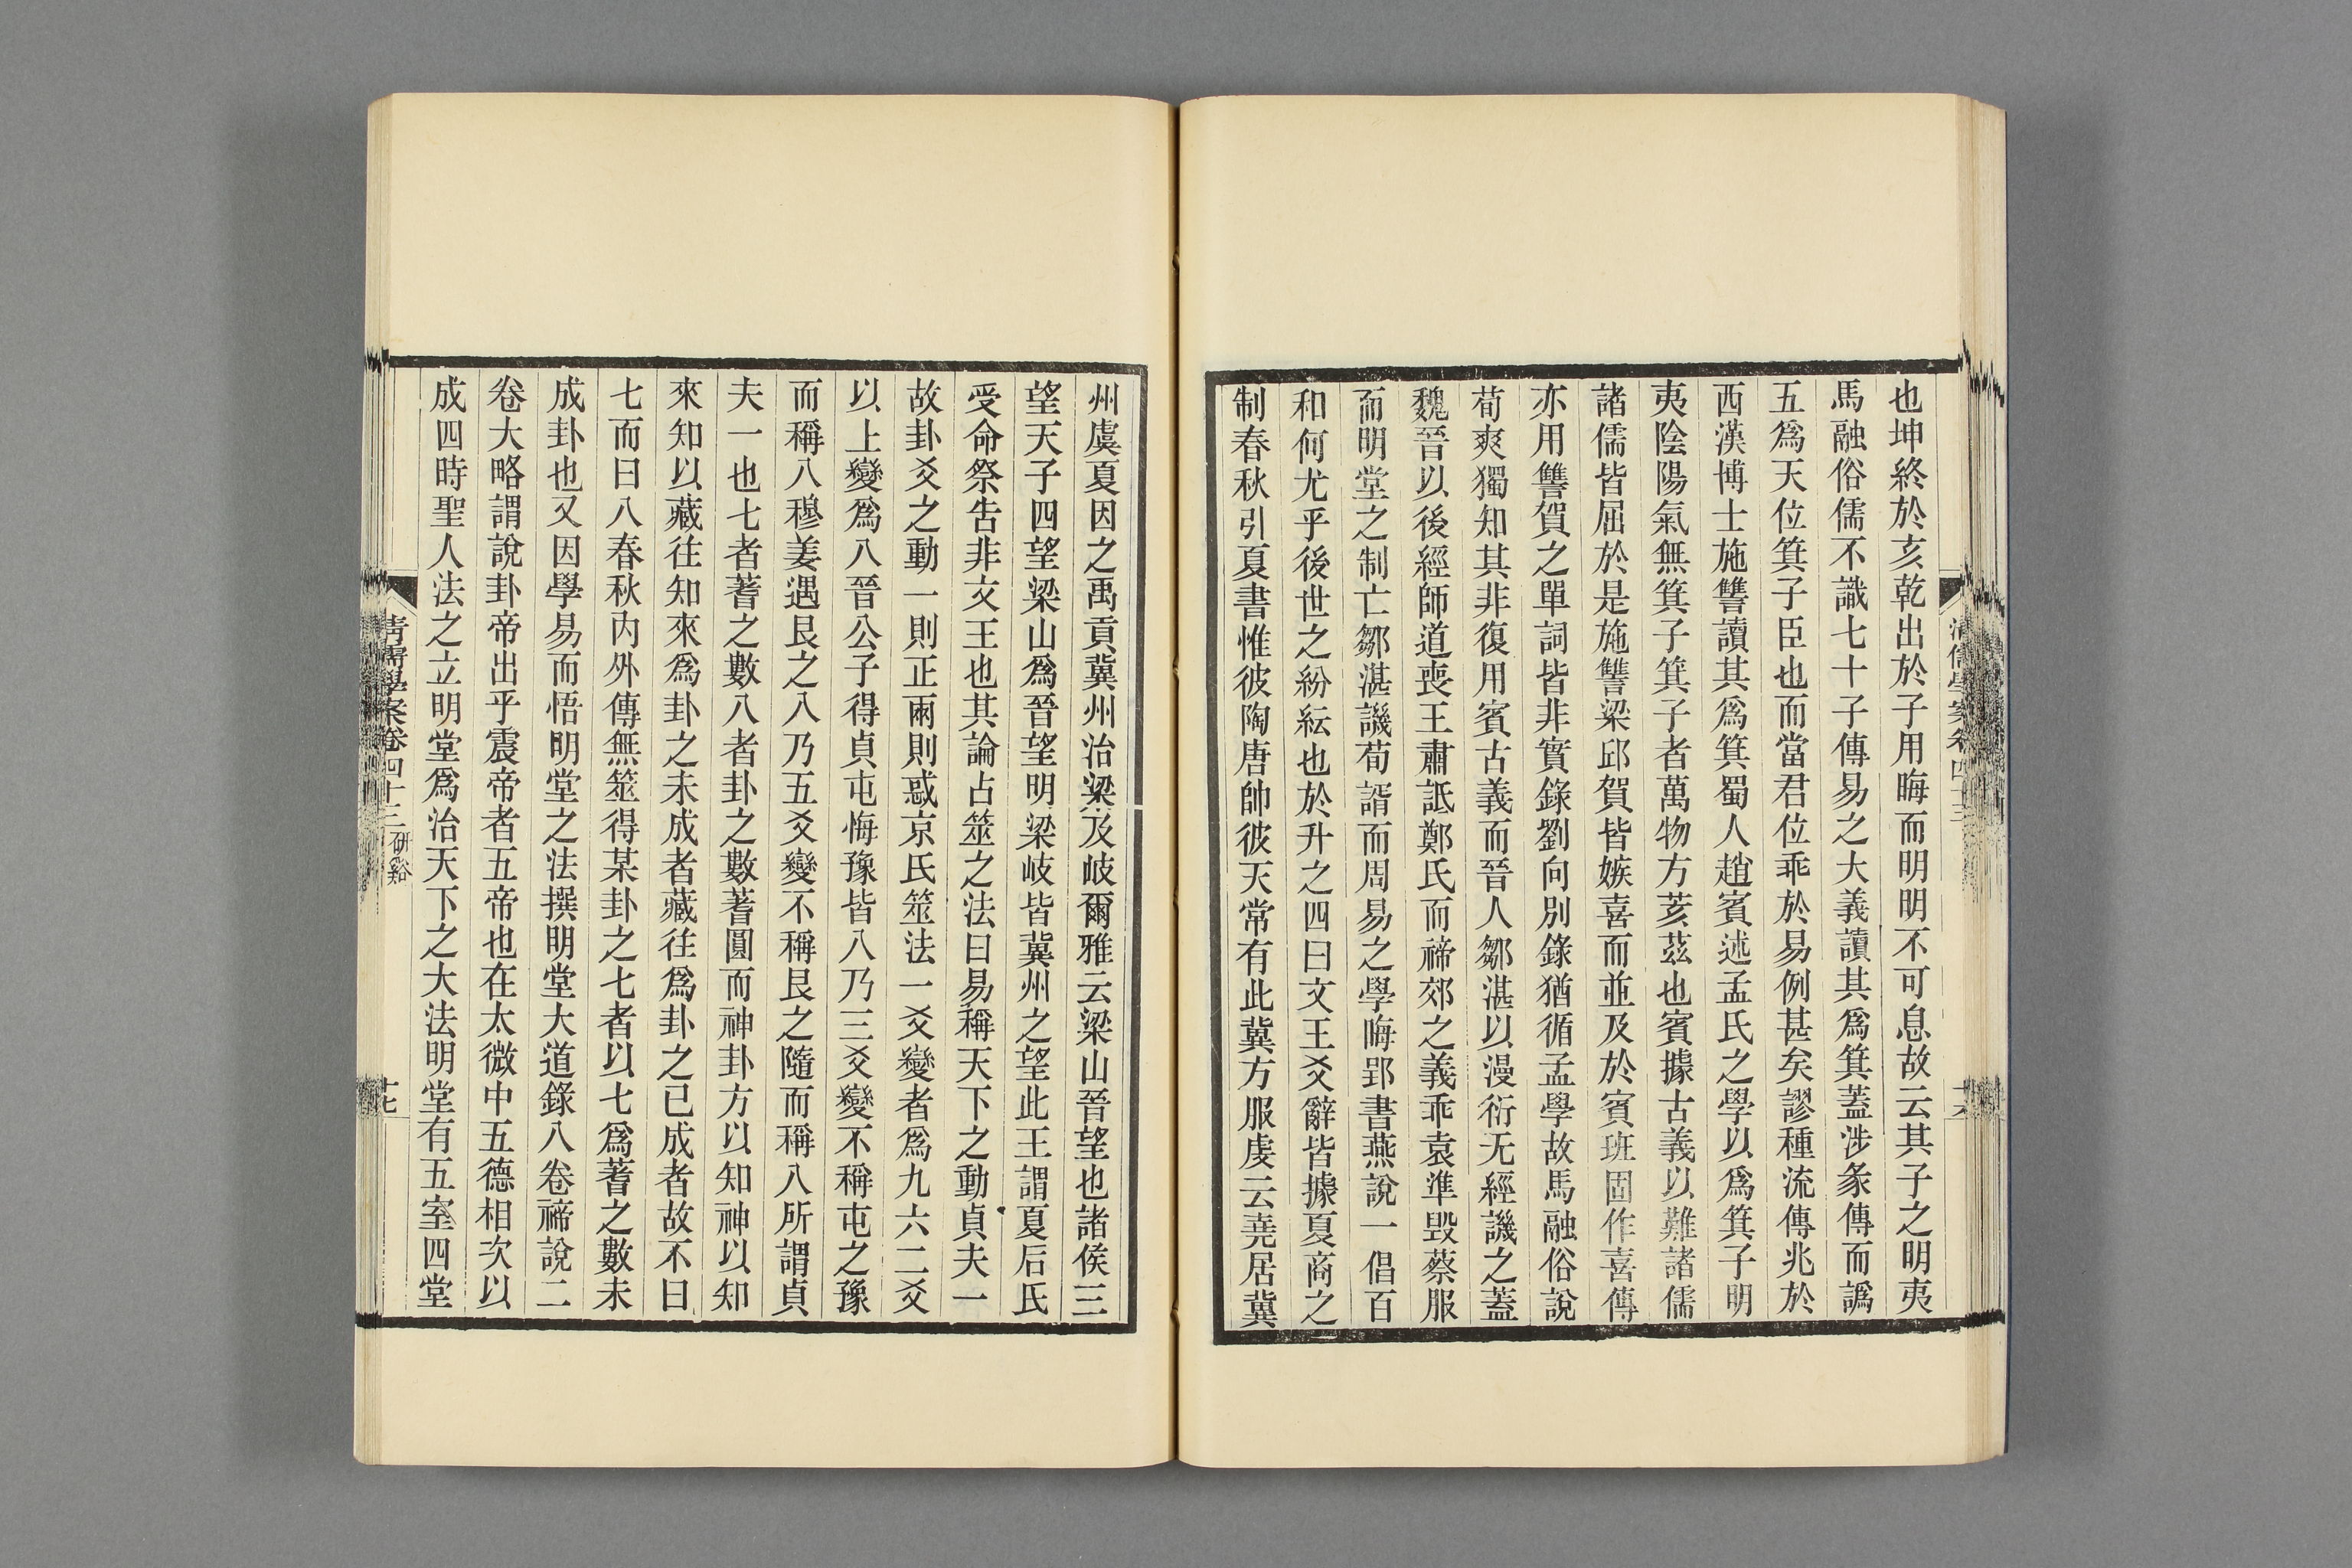 也坤終於亥乾出於子用晦而明明不可息故云其子之明夷
馬融俗儒不識七十子傳易之大義讀其爲箕蓋涉彖傳而譌
五爲天位箕子臣也而當君位乖於易例甚矣謬種流傳兆於
西漢博士施讐讀其爲箕蜀人趙賓述孟氏之學以爲箕子明
夷陰陽氣無箕子箕子者萬物方荄茲也賓據古義以難諸儒
諸儒皆屈於是施讐梁邱賀皆嫉喜而並及於賓班固作喜傳
亦用讐賀之單詞皆非實錄劉向別錄猶循孟學故馬融俗說
荀爽獨知其非復用賓古義而晉人鄒湛以漫衍无經譏之蓋
魏晉以後經師道喪王肅詆鄭氏而禘郊之義乖袁準毀蔡服
而明堂之制亡鄒湛譏荀諝而周易之學晦郢書燕說一倡百
和何尤乎後世之紛紜也於升之四曰文王爻辭皆據夏商之
制春秋引夏書惟彼陶唐帥彼天常有此冀方服虔云堯居冀
清儒學案卷四十三
十六
州虞夏因之禹貢冀州治梁及岐爾雅云梁山晉望也諸侯三
望天子四望梁山爲晉望明梁岐皆冀州之望此王謂夏后氏
受命祭告非文王也其論占筮之法曰易稱天下之動貞夫一
故卦爻之動一則正兩則惑京氏筮法一爻變者爲九六二爻
以上變爲八晉公子得貞屯悔豫皆八乃三爻變不稱屯之豫
而稱八穆姜遇艮之八乃五爻變不稱艮之隨而稱八所謂貞
夫一也七者蓍之數八者卦之數蓍圓而神卦方以知神以知
來知以藏往知來爲卦之未成者藏往爲卦之已成者故不曰
七而曰八春秋內外傳無筮得某卦之七者以七爲蓍之數未
成卦也又因學易而悟明堂之法撰明堂大道錄八卷禘說二
卷大略謂說卦帝出乎震帝者五帝也在太微中五德相次以
成四時聖人法之立明堂爲治天下之大法明堂有五室四堂
清儒學案卷四十三 研谿
十七